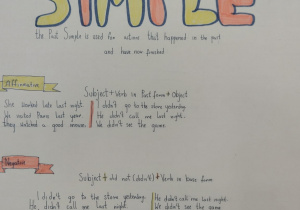 SIMPLE
the Past Simple is used for actions that happened in the past
and have now finished
Affirmative
Subject + Verb in Past form + Object
She worked late last night.
We visited Paris last year.
They watched a good movie.
I didn't go to the store yesterday.
He didn't call me last night.
We didn't see the game
Negative
Subject + did not (didn't) + Verb in base form
I didn't go to the store yesterday.
He didn't call me last night.
He didn't call me last night.
We didn't see the game